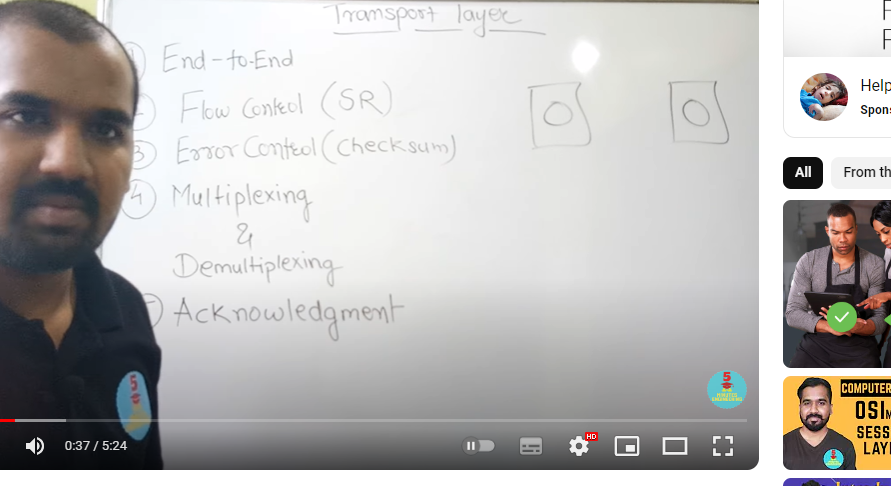 Transport layer
End-to-End
Flow Control (SR)
3 Error Control (checksum)
4 Multiplexing
&
Demultiplexing
Acknowledgment
5
MINUTES
ENGINEERING
5
HD
0:37 / 5:24
Help
Spons
All
From th
COMPUTER
OSI
SESS
LAY